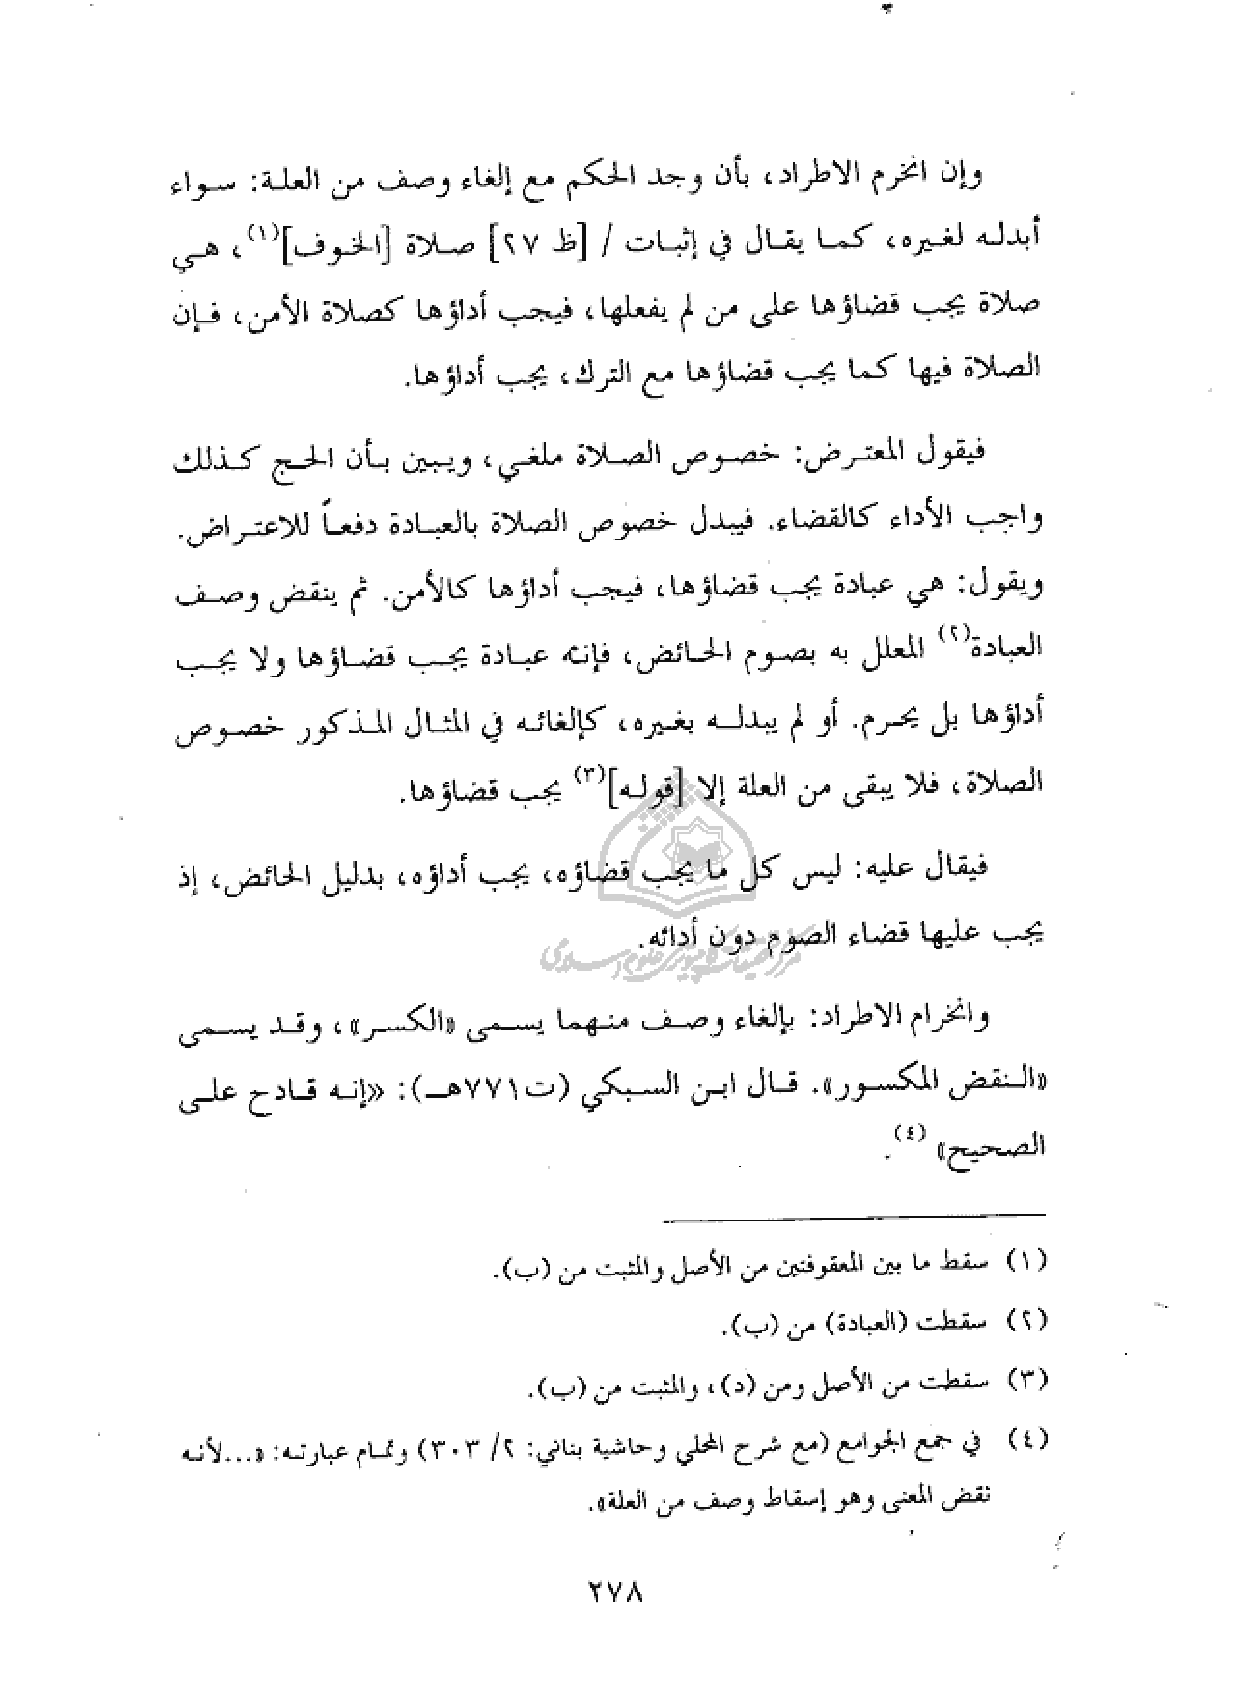 وإن انخرم الاطراد، بأن وجد الحكم مع إلغاء وصف من العلة: سواء
أبدله لغيره، كما يقال في إثبات / [ظ ٢٧] صلاة [الخوف](١)، هي
صلاة يجب قضاؤها على من لم يفعلها، فيجب أداؤها كصلاة الأمن، فإن
الصلاة فيها كما يجب قضاؤها مع الترك، يجب أداؤها.
فيقول المعترض: خصوص الصلاة ملغي، ويبين بأن الحج كذلك
واجب الأداء كالقضاء. فيبدل خصوص الصلاة بالعبادة دفعاً للاعتراض.
ويقول: هي عبادة يجب قضاؤها، فيجب أداؤها كالأمن. ثم ينقض وصف
العبادة(٢) المعلل به بصوم الحائض، فإنه عبادة يجب قضاؤها ولا يجب
أداؤها بل يحرم. أو لم يبدله بغيره، كإلغائه في المثال المذكور خصوص
الصلاة، فلا يبقى من العلة إلا [قوله](٣) يجب قضاؤها.
فيقال عليه: ليس كل ما يجب قضاؤه، يجب أداؤه، بدليل الحائض، إذ
يجب عليها قضاء الصوم دون أدائه.
وانخرام الاطراد: بإلغاء وصف منهما يسمى «الكسر»، وقد يسمى
«النقض المكسور». قال ابن السبكي (ت٧٧١هـ): «إنه قادح على
الصحيح» (٤).
(١) سقط ما بين المعقوفتين من الأصل والمثبت من (ب).
(٢) سقطت (العبادة) من (ب).
(٣) سقطت من الأصل ومن (د)، والمثبت من (ب).
(٤) في جمع الجوامع (مع شرح المحلي وحاشية بناني: ٢/ ٣٠٣) وتمام عبارته: «...لأنه
نقض المعنى وهو إسقاط وصف من العلة».
٢٧٨